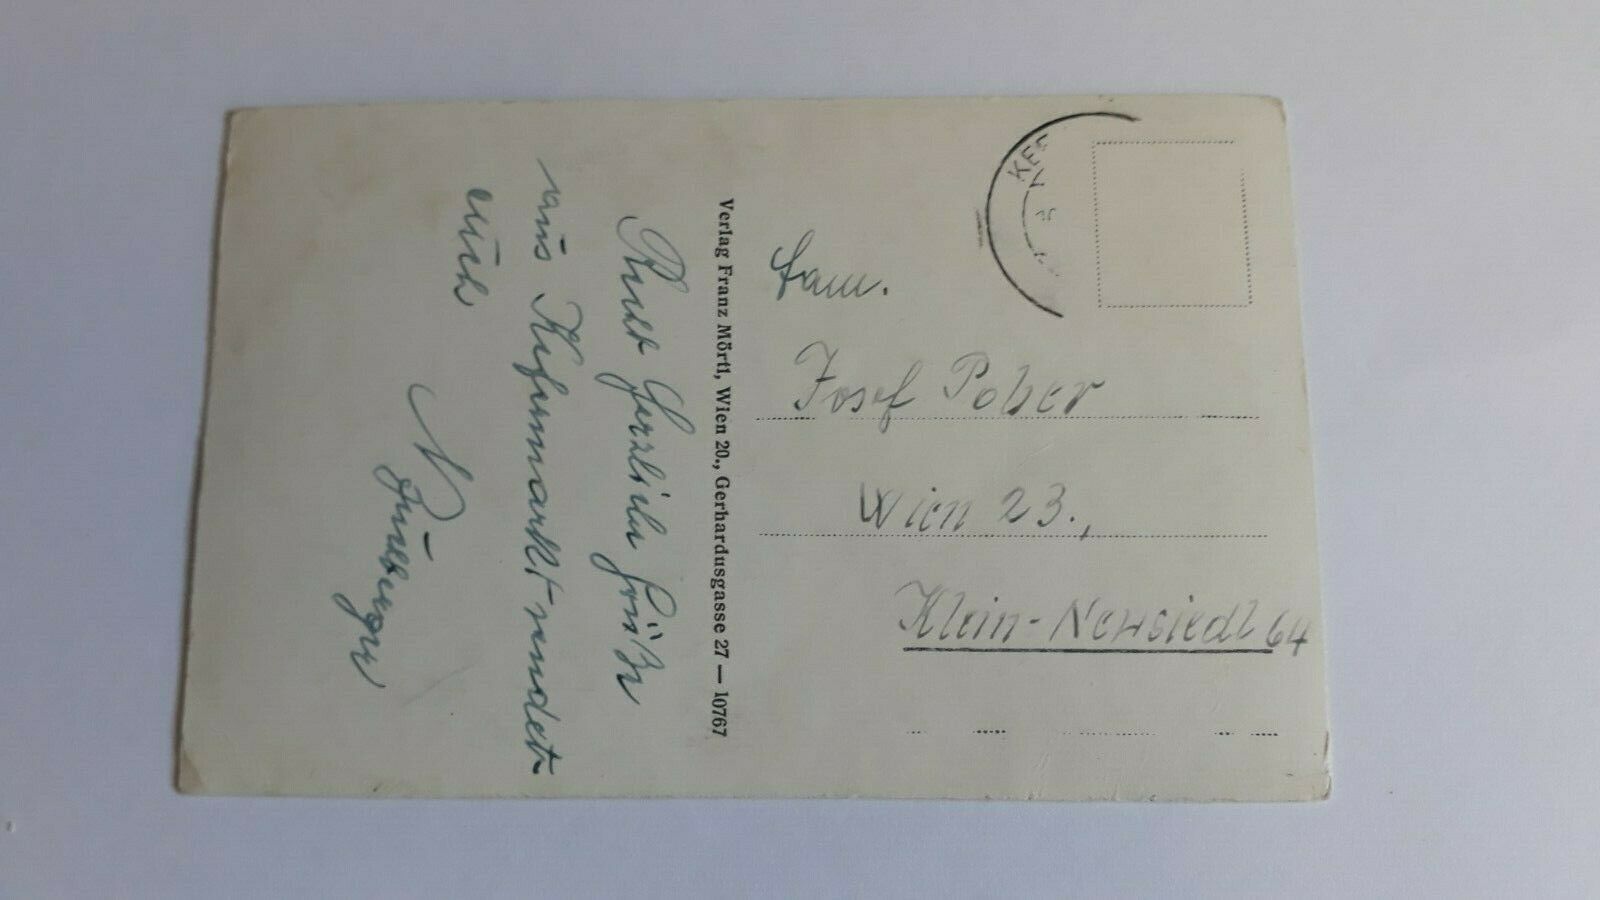 Recht herzliche Grüße
aus Kefermarkt sendet
euch
Verlag Franz Mörtl, Wien 20., Gerhardusgasse 27 — 10767
KEF
Fam.
Josef Pober
Wien 23.,
Klein-Neusiedl 64